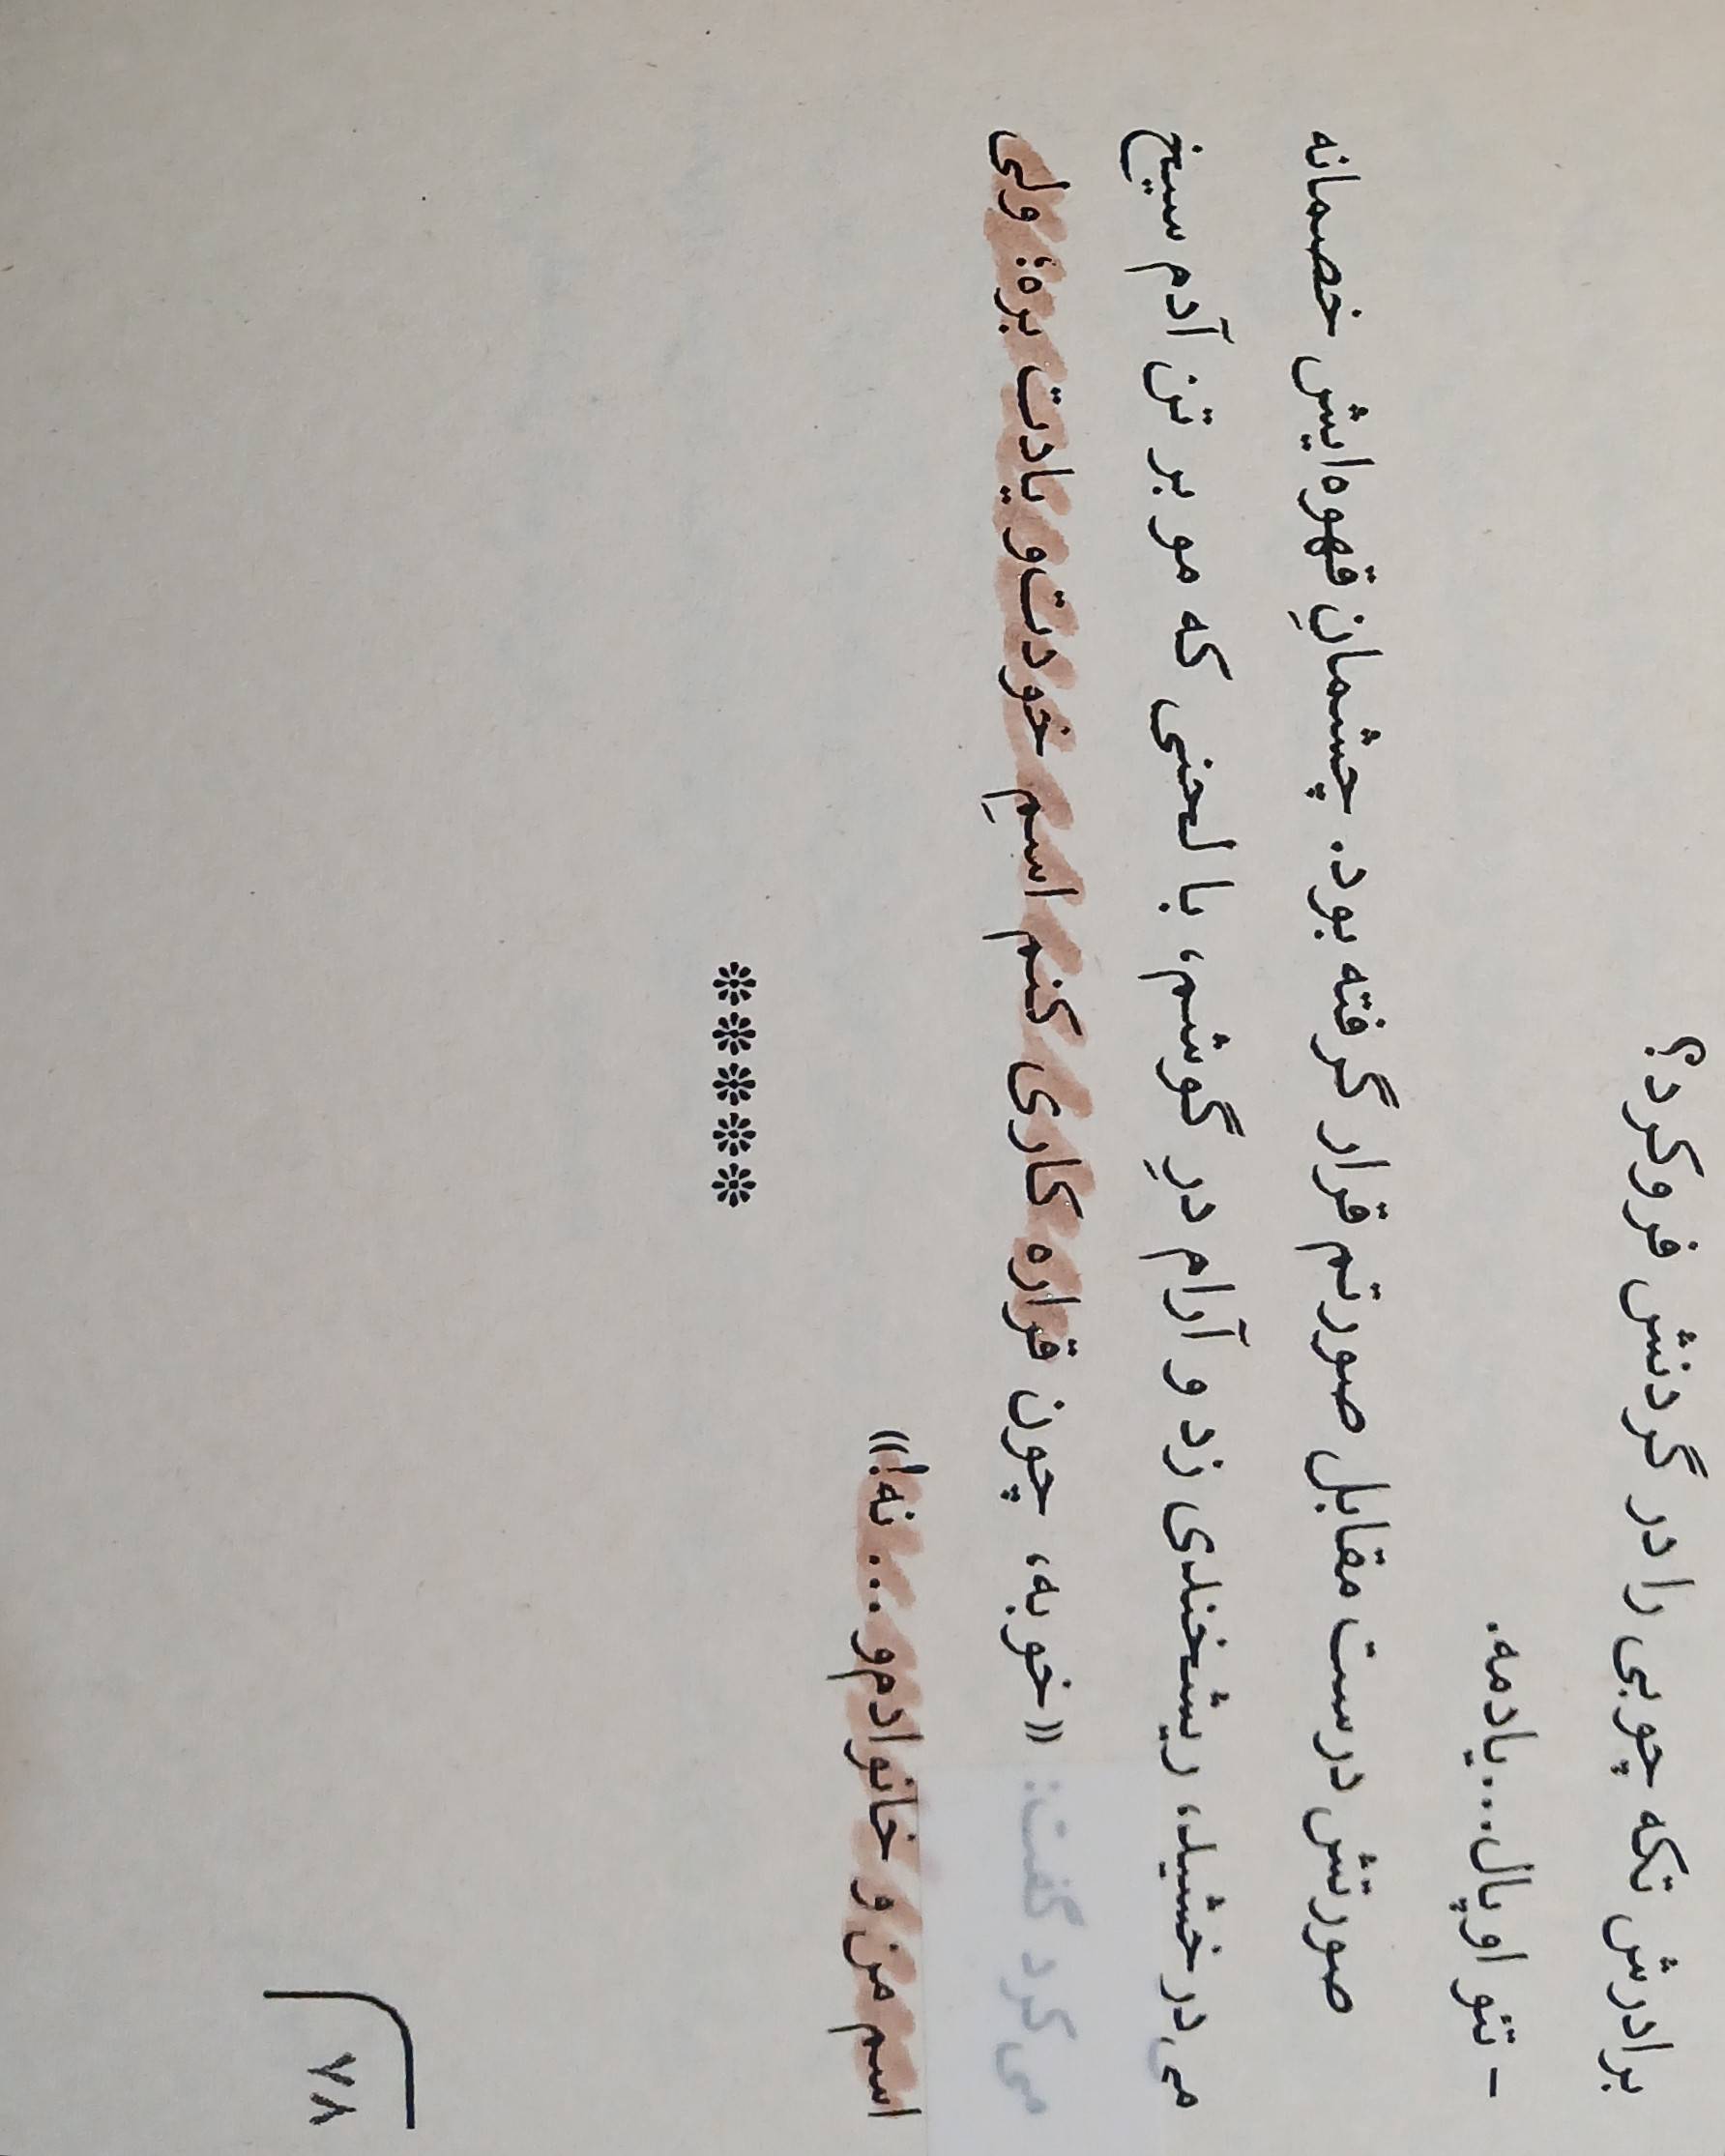 برادرش تکه چوبی را در گردنش فرو کرد؟
- تئو اوپال...یادمه.
صورتش درست مقابل صورتم قرار گرفته بود. چشمانِ قهوه‌ایش خصمانه
می‌درخشید، ریشخندی زد و آرام درِ گوشم، با لحنی که مو بر تن آدم سیخ
می‌کرد گفت: «خوبه، چون قراره کاری کنم اسمِ خودت‌و یادت بره؛ ولی
اسم من و خانوادم‌و... نه!»
❊❊❊❊❊
۷۸